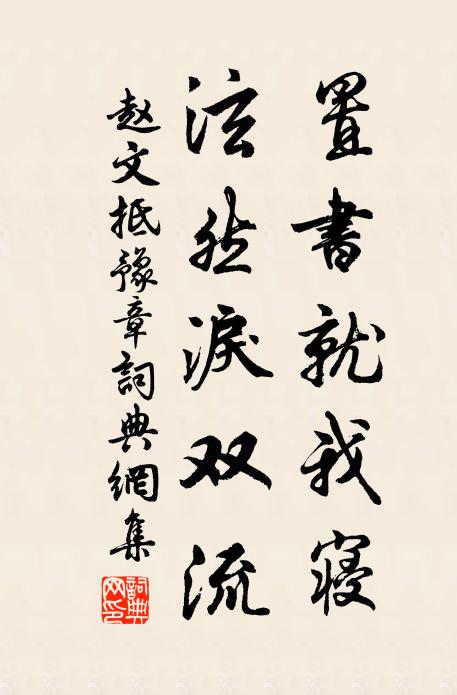 置書就我寝
泫然淚双流
赵文抵豫章詞典網集
詞典网印